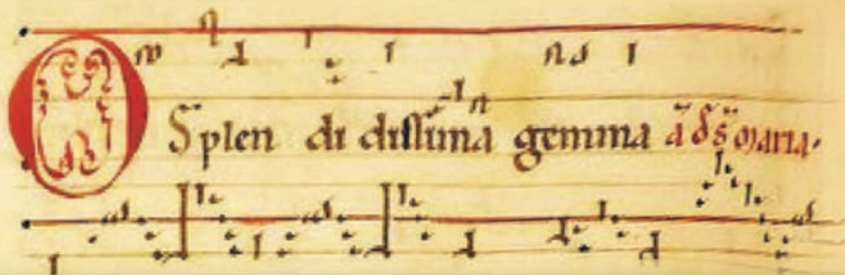 O Splen di dissima gemma a͞ d̄ s̄ maria.